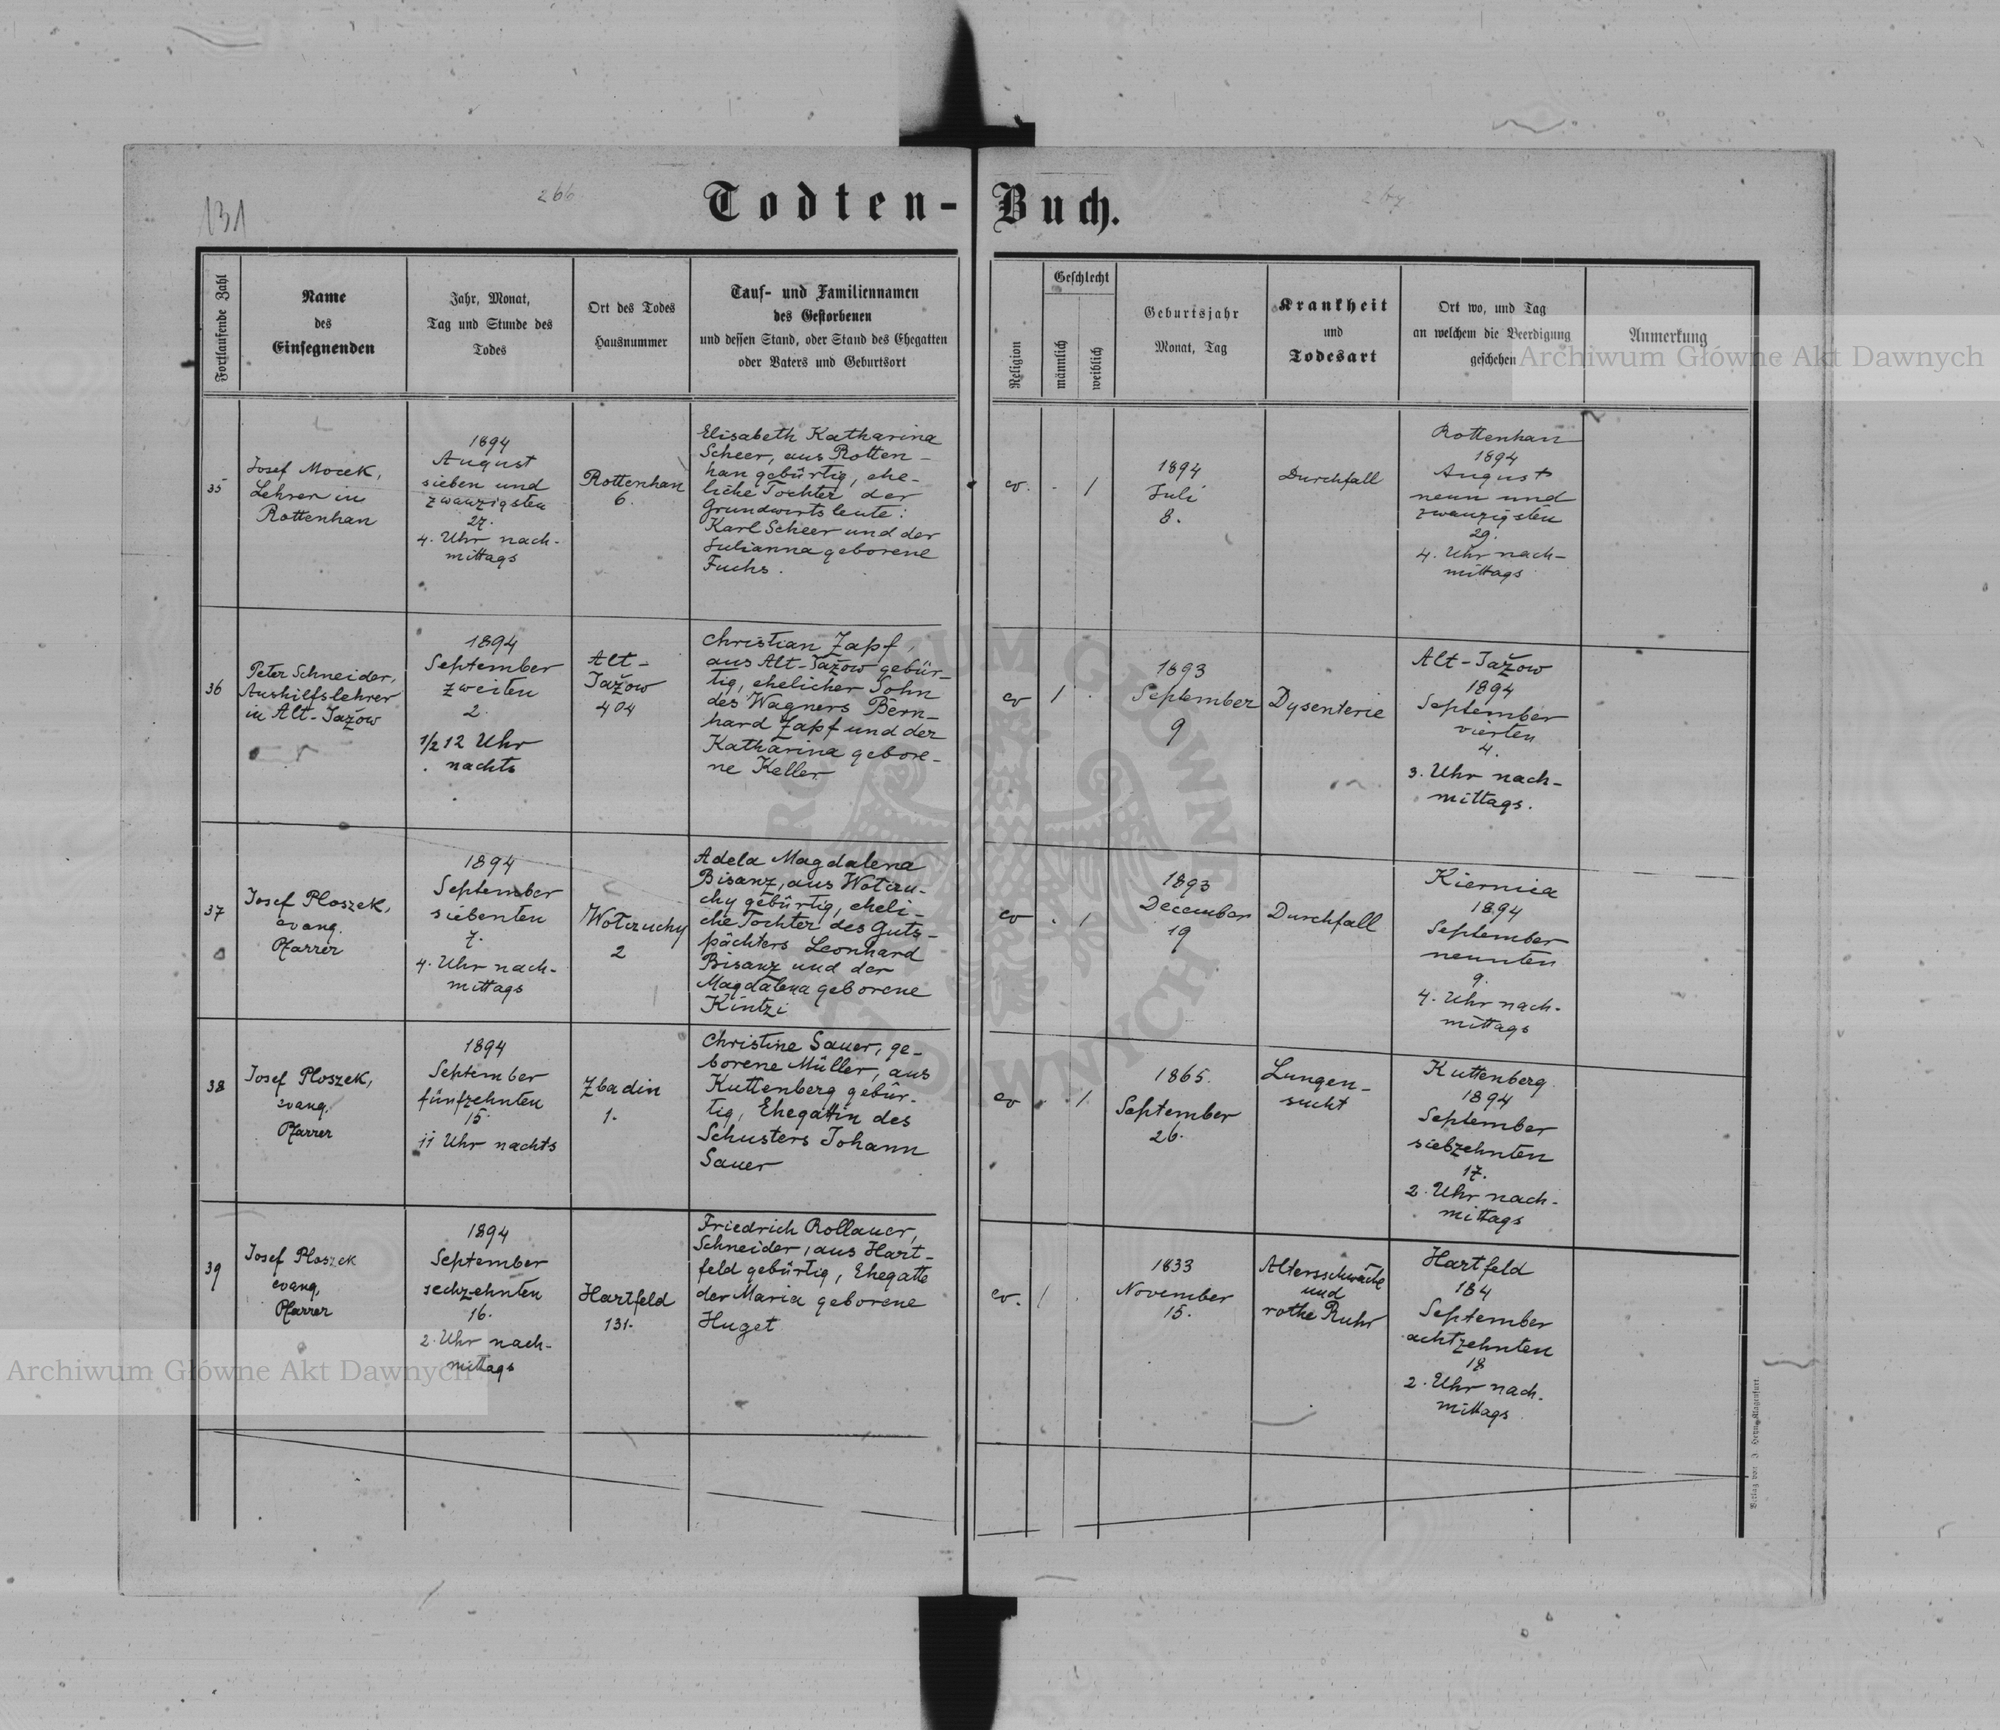 131
266
Todten-Buch.
267
Fortlaufende Zahl
Name
des
Einsegnenden
Jahr, Monat,
Tag und Stunde des
Todes
Ort des Todes
Hausnummer
Tauf- und Familiennamen
des Gestorbenen
und dessen Stand, oder Stand des Ehegatten
oder Vaters und Geburtsort
Religion
Geschlecht
männlich
weiblich
Geburtsjahr
Monat, Tag
Krankheit
und
Todesart
Ort wo, und Tag
an welchem die Beerdigung
geschehen
Anmerkung
35
Josef Mocek,
Lehrer in
Rottenhan
1894
August
sieben und
zwanzigsten
27.
4. Uhr nach-
mittags
Rottenhan
6.
Elisabeth Katharina
Scheer, aus Rotten-
han gebürtig, ehe-
liche Tochter der
Grundwirtsleute:
Karl Scheer und der
Julianna geborene
Fuchs.
ev. . /
1894
Juli
8.
Durchfall
Rottenhan
1894
August
neun und
zwanzigsten
29.
4. Uhr nach-
mittags
36
Peter Schneider,
Aushilfslehrer
in Alt-Jažow
1894
September
zweiten
2.
1/2 12 Uhr
nachts
Alt-
Jažow
404
Christian Zapf,
aus Alt-Jažow gebür-
tig, ehelicher Sohn
des Wagners Bern-
hard Zapf und der
Katharina gebore-
ne Keller
ev / .
1893
September
9
Dysenterie
Alt-Jažow
1894
September
vierten
4.
3. Uhr nach-
mittags.
37
Josef Ploszek,
evang.
Pfarrer
1894
September
siebenten
7.
4. Uhr nach-
mittags
Wołczuchy
2
Adela Magdalena
Bisanz, aus Wołczu-
chy gebürtig, eheli-
che Tochter des Guts-
pächters Leonhard
Bisanz und der
Magdalena geborene
Kintzi
ev . /
1893
December
19
Durchfall
Kiernica
1894
September
neunten
9.
4. Uhr nach-
mittags
38
Josef Ploszek,
evang.
Pfarrer
1894
September
fünfzehnten
15.
11 Uhr nachts
Zbadin
1.
Christine Sauer, ge-
borene Müller, aus
Kuttenberg gebür-
tig, Ehegattin des
Schusters Johann
Sauer
ev . /
1865.
September
26.
Lungen-
sucht
Kuttenberg
1894
September
siebzehnten
17.
2. Uhr nach-
mittags
39
Josef Ploszek
evang.
Pfarrer
1894
September
sechzehnten
16.
2. Uhr nach-
mittags
Hartfeld
131.
Friedrich Rollauer,
Schneider, aus Hart-
feld gebürtig, Ehegatte
der Maria geborene
Huget
ev. / .
1833
November
15.
Altersschwäche
und
rothe Ruhr
Hartfeld
184
September
achtzehnten
18
2. Uhr nach-
mittags
Archiwum Główne Akt Dawnych
Archiwum Główne Akt Dawnych
ARCHIWUM GŁÓWNE AKT DAWNYCH